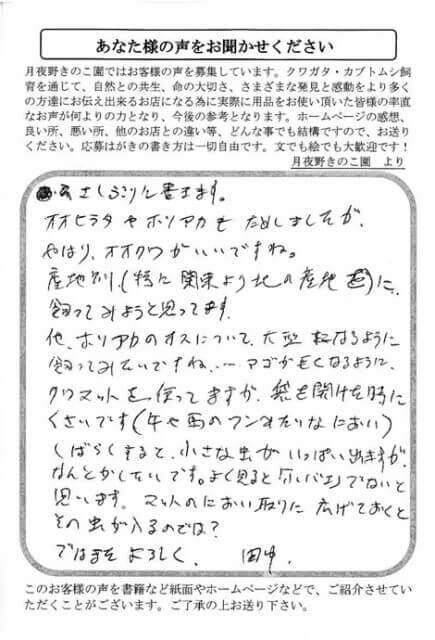 あなた様の声をお聞かせください
月夜野きのこ園ではお客様の声を募集しています。クワガタ・カブトムシ飼
育を通じて、自然との共生、命の大切さ、さまざまな発見と感動をより多く
の方達にお伝え出来るお店になる為に実際に用品をお使い頂いた皆様の率直
なお声が何よりの力となり、今後の参考となります。ホームページの感想、
良い所、悪い所、他のお店との違い等、どんな事でも結構ですので、お送り
ください。応募はがきの書き方は一切自由です。文でも絵でも大歓迎です！
月夜野きのこ園 より
書きます。
オオヒラタやホリアカもためしましたが、
やはり、オオクワがいいですね。
産地別、(特に関東より北の産地)に、
飼ってみようと思ってます。
他、ホリアカのオスについて、大型になるように
飼ってみたいですね、… アゴが長くなるように、
クワマットを使ってますが、袋を開けた時に
くさいです(牛や馬のフンみたいなにおい)
しばらくすると、小さな虫がいっぱい出ますが、
なんとかしたいです。よく見ると小バエでないと
思います。マットのにおい取りに広げておくと
その虫が入るのでは？
ではまたよろしく、 田中.
このお客様の声を書籍など紙面やホームページなどで、ご紹介させてい
ただくことがございます。ご了承の上お送り下さい。